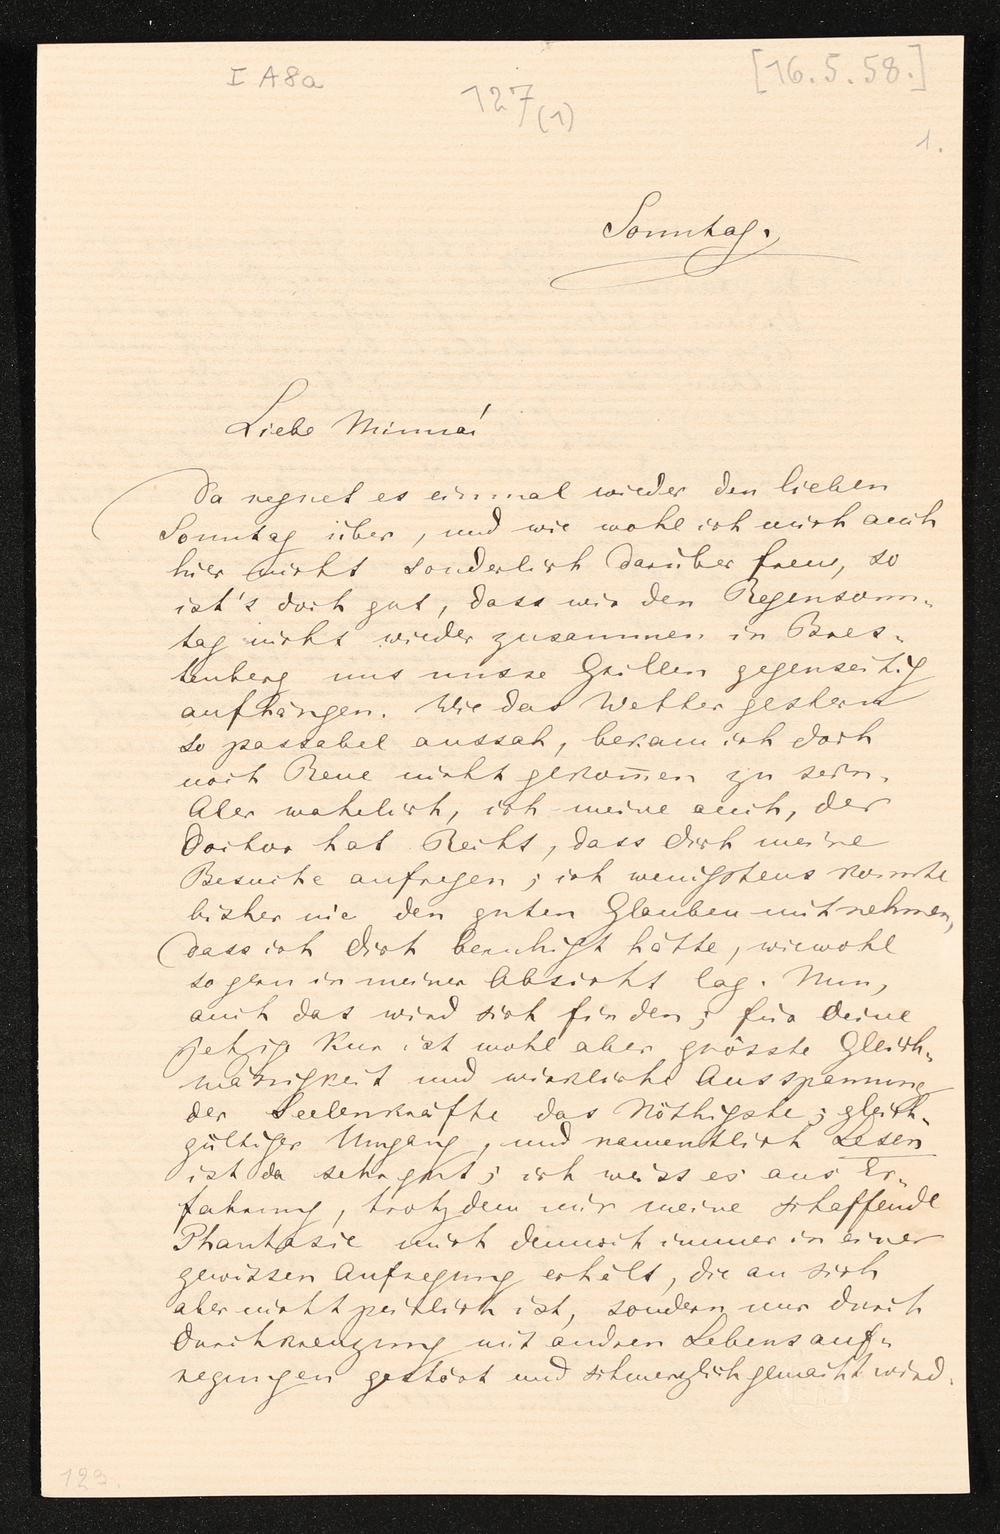 I A8a
[16.5.58.]
127
(1)
1.
Sonntag.
Liebe Minna!
Da regnet es einmal wieder den lieben
Sonntag über, und wie wohl ich mich auch
hier nicht sonderlich darüber freue, so
ist's doch gut, dass wir den Regensonn-
tag nicht wieder zusammen in Bres-
tenberg uns unsre Grillen gegenseitig
aufhängen. Wie das Wetter gestern
so passabel aussah, bekam ich doch
noch Reue nicht gekom̅en zu sein.
Aber wahrlich, ich meine auch, der
Doctor hat Recht, dass dich meine
Besuche aufregen; ich wenigstens konnte
bisher nie den guten Glauben mit nehmen,
dass ich dich beruhigt hätte, wiewohl
so gern in meiner Absicht lag. Nun,
auch das wird sich finden; für deine
jetzige Kur ist wohl aber grösste Gleich-
mässigkeit und wirkliche Ausspannung
der Seelenkräfte das Nöthigste; gleich-
gültiger Umgang, und namentlich Lesen
ist da sehr gut; ich weiss es aus Er-
fahrung, trotzdem mir meine schaffende
Phantasie mich dennoch immer in einer
gewissen Aufregung erhält, die an sich
aber nicht peinlich ist, sondern nur durch
Durchkreuzung mit andren Lebensauf-
regungen gestört und schmerzlich gemacht wird.
123.